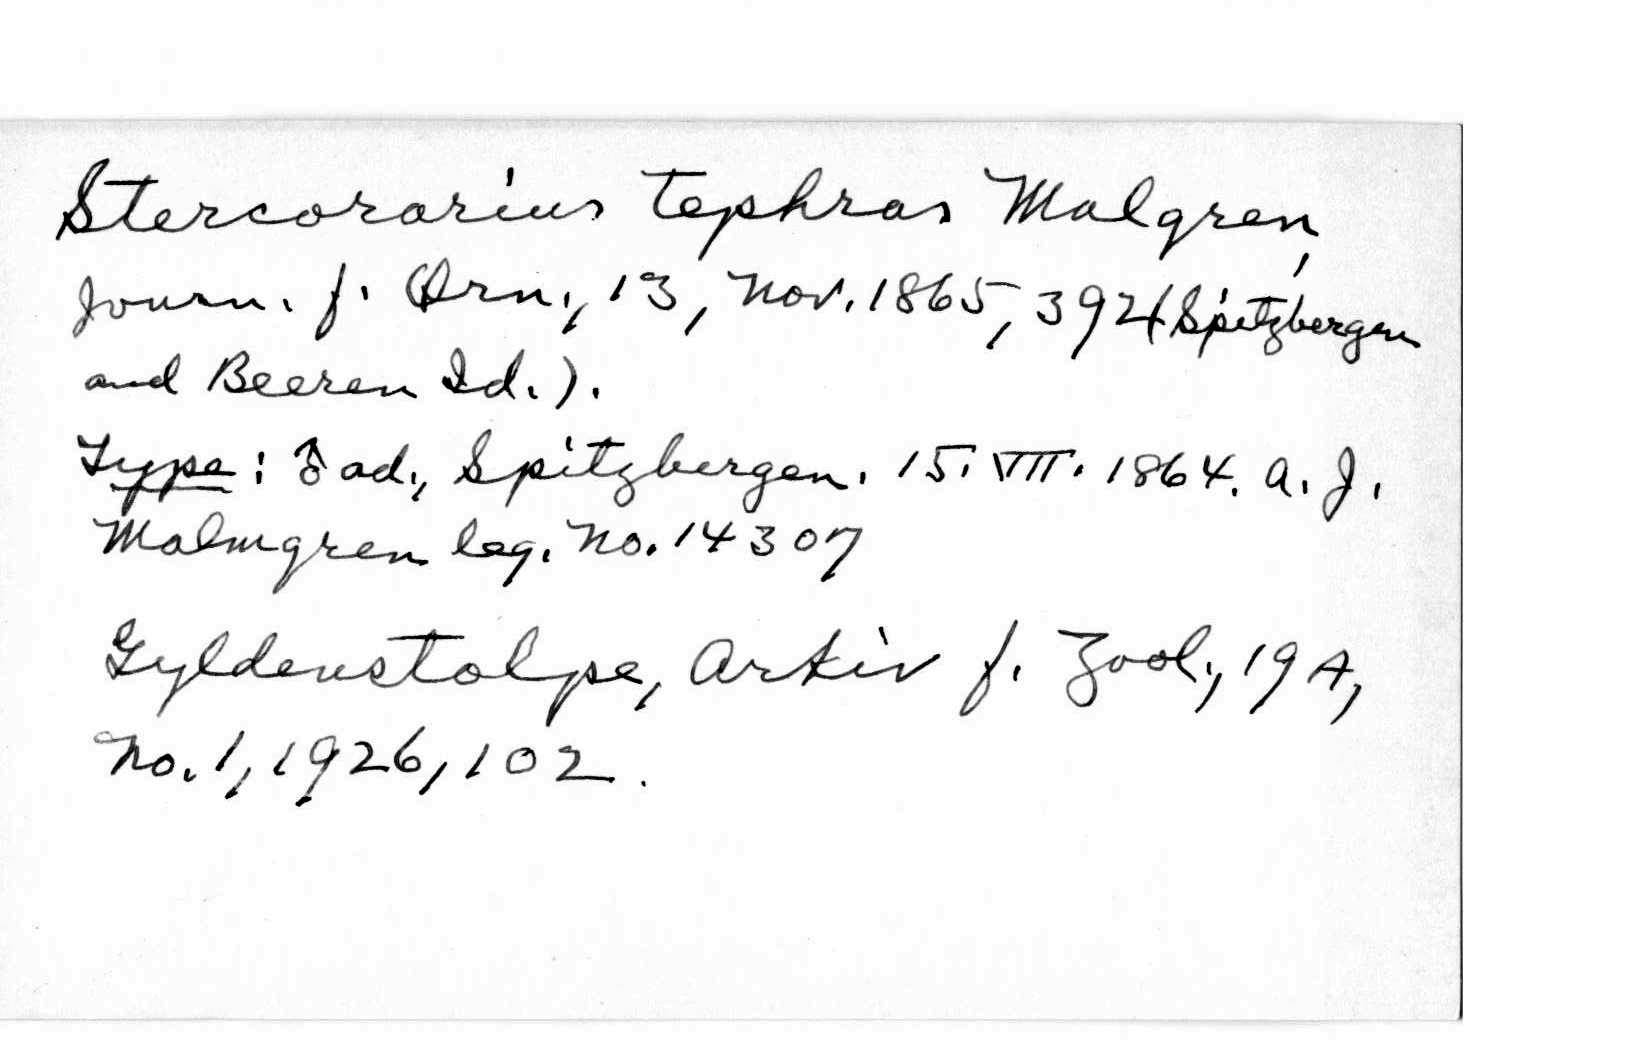 Stercorarius tephras Malgren,
Journ. f. Orn., 13, Nov. 1865, 392 (Spitzbergen
and Beeren Id.).
Type: ♂ ad., Spitzbergen. 15. VII. 1864. A. J.
Malmgren leg. No. 14307
Gyldenstolpe, Arkiv f. Zool., 19A,
No. 1, 1926, 102.